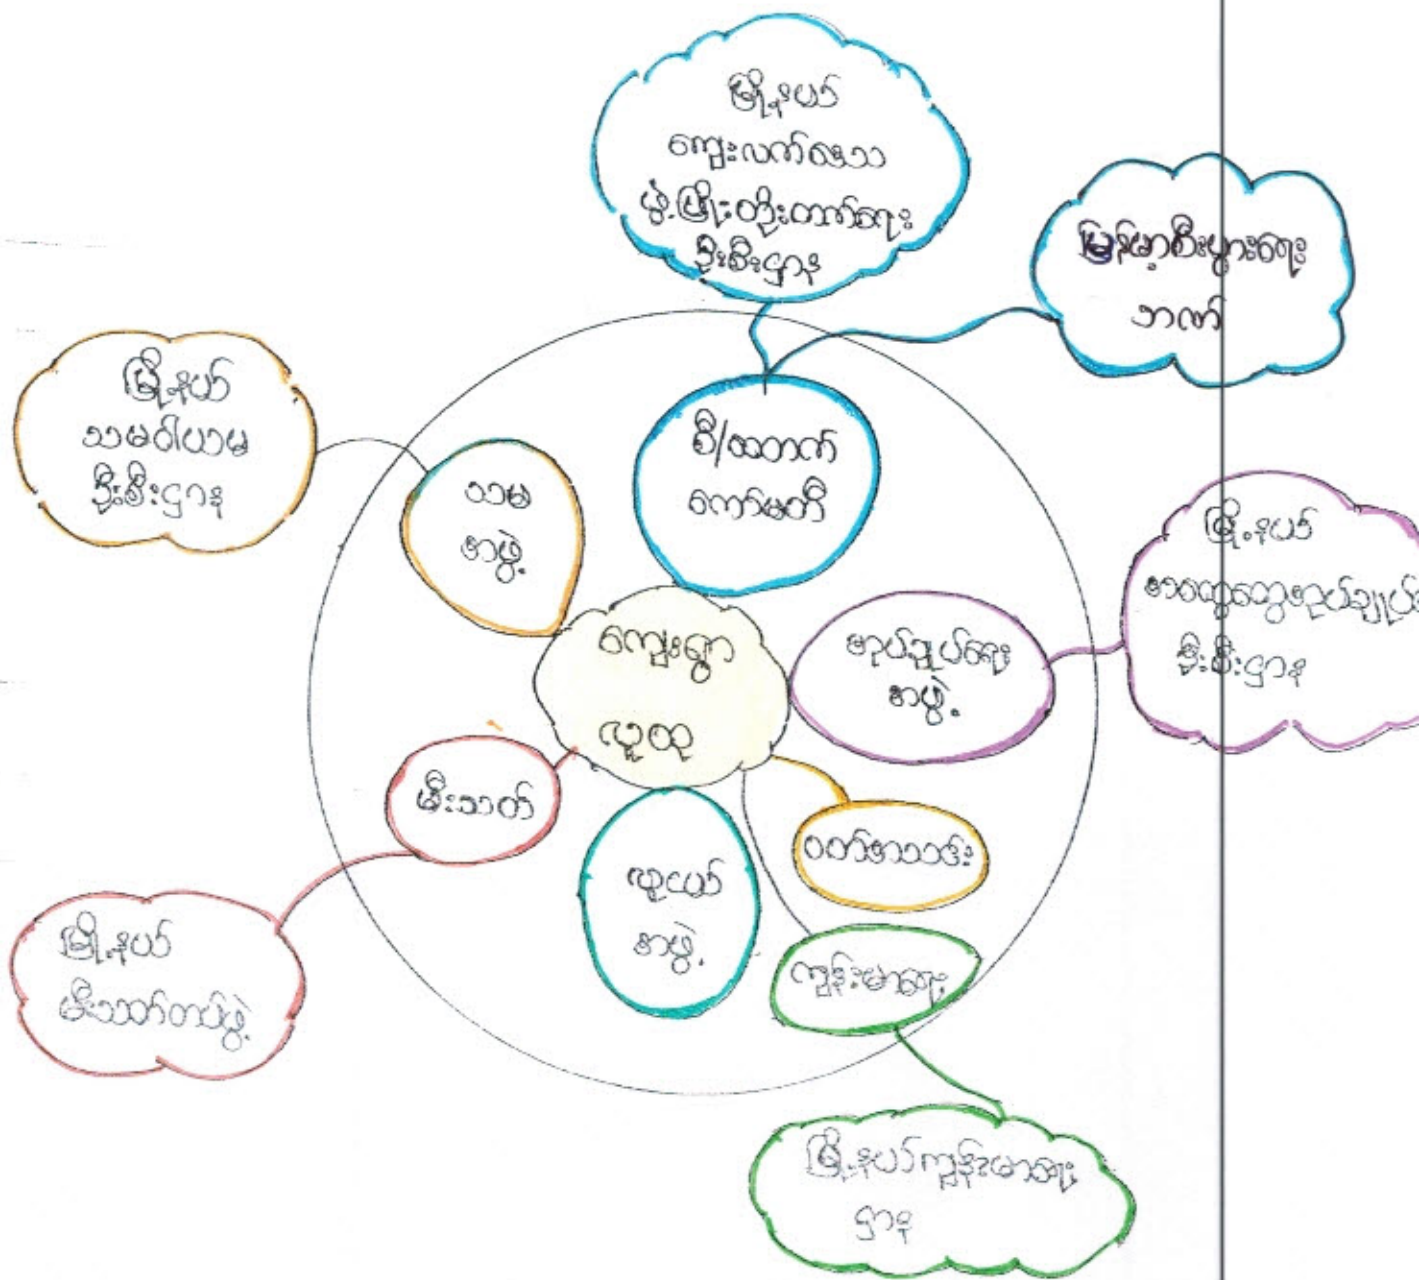 မြို့နယ်
ကျေးလက်ဒေသ
ဖွံ့ဖြိုးတိုးတက်ရေး
ဦးစီးဌာန
မြန်မာ့စီးပွားရေး
ဘဏ်
မြို့နယ်
သမဝါယမ
ဦးစီးဌာန
သမ
အဖွဲ့
စီ/ထောက်
ကော်မတီ
မြို့နယ်
အထွေထွေအုပ်ချုပ်
ဦးစီးဌာန
ကျေးရွာ
လူထု
အုပ်ချုပ်ရေး
အဖွဲ့
မီးသတ်
ဝတ်အသင်း
လူငယ်
အဖွဲ့
ကျန်းမာရေး
မြို့နယ်
မီးသတ်တပ်ဖွဲ့
မြို့နယ်ကျန်းမာရေး
ဌာန